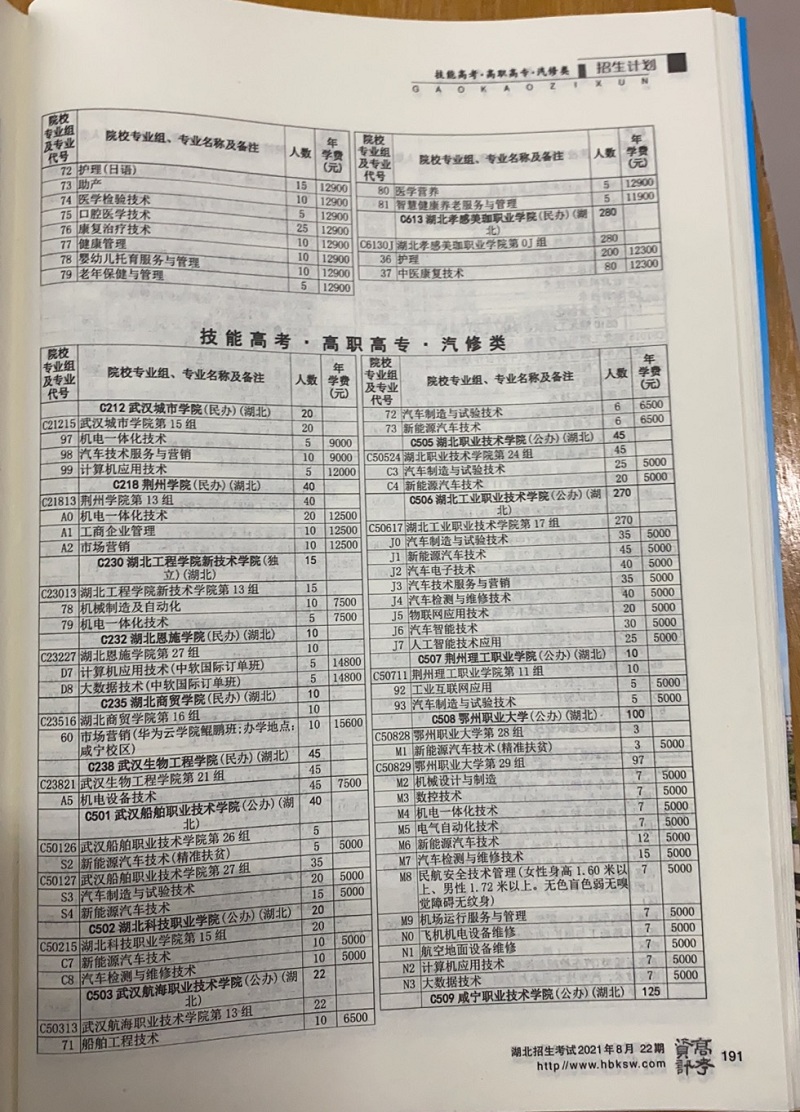 技能高考·高职高专·汽修类 招生计划
GAOKAOZIXUN
院校专业组及专业代号 院校专业组、专业名称及备注 人数 年学费(元)
72 护理(日语) 15 12900
73 助产 10 12900
74 医学检验技术 5 12900
75 口腔医学技术 25 12900
76 康复治疗技术 10 12900
77 健康管理 10 12900
78 婴幼儿托育服务与管理 10 12900
79 老年保健与管理 5 12900
院校专业组及专业代号 院校专业组、专业名称及备注 人数 年学费(元)
80 医学营养 5 12900
81 智慧健康养老服务与管理 5 11900
C613 湖北孝感美珈职业学院(民办)(湖 280
北)
C6130J 湖北孝感美珈职业学院第0J组 280
36 护理 200 12300
37 中医康复技术 80 12300
技能高考·高职高专·汽修类
院校专业组及专业代号 院校专业组、专业名称及备注 人数 年学费(元)
C212 武汉城市学院(民办)(湖北) 20
C21215 武汉城市学院第15组 20
97 机电一体化技术 5 9000
98 汽车技术服务与营销 10 9000
99 计算机应用技术 5 12000
C218 荆州学院(民办)(湖北) 40
C21813 荆州学院第13组 40
A0 机电一体化技术 20 12500
A1 工商企业管理 10 12500
A2 市场营销 10 12500
C230 湖北工程学院新技术学院(独 15
立)(湖北)
C23013 湖北工程学院新技术学院第13组 15
78 机械制造及自动化 10 7500
79 机电一体化技术 5 7500
C232 湖北恩施学院(民办)(湖北) 10
C23227 湖北恩施学院第27组 10
D7 计算机应用技术(中软国际订单班) 5 14800
D8 大数据技术(中软国际订单班) 5 14800
C235 湖北商贸学院(民办)(湖北) 10
C23516 湖北商贸学院第16组 10
60 市场营销(华为云学院鲲鹏班;办学地点: 10 15600
咸宁校区)
C238 武汉生物工程学院(民办)(湖北) 45
C23821 武汉生物工程学院第21组 45
A5 机电设备技术 45 7500
C501 武汉船舶职业技术学院(公办)(湖 40
北)
C50126 武汉船舶职业技术学院第26组 5
S2 新能源汽车技术(精准扶贫) 5 5000
C50127 武汉船舶职业技术学院第27组 35
S3 汽车制造与试验技术 20 5000
S4 新能源汽车技术 15 5000
C502 湖北科技职业学院(公办)(湖北) 20
C50215 湖北科技职业学院第15组 20
C7 新能源汽车技术 10 5000
C8 汽车检测与维修技术 10 5000
C503 武汉航海职业技术学院(公办)(湖 22
北)
C50313 武汉航海职业技术学院第13组 22
71 船舶工程技术 10 6500
院校专业组及专业代号 院校专业组、专业名称及备注 人数 年学费(元)
72 汽车制造与试验技术 6 6500
73 新能源汽车技术 6 6500
C505 湖北职业技术学院(公办)(湖北) 45
C50524 湖北职业技术学院第24组 45
C3 汽车制造与试验技术 25 5000
C4 新能源汽车技术 20 5000
C506 湖北工业职业技术学院(公办)(湖 270
北)
C50617 湖北工业职业技术学院第17组 270
J0 汽车制造与试验技术 35 5000
J1 新能源汽车技术 45 5000
J2 汽车电子技术 40 5000
J3 汽车技术服务与营销 35 5000
J4 汽车检测与维修技术 40 5000
J5 物联网应用技术 20 5000
J6 汽车智能技术 30 5000
J7 人工智能技术应用 25 5000
C507 荆州理工职业学院(公办)(湖北) 10
C50711 荆州理工职业学院第11组 10
92 工业互联网应用 5 5000
93 汽车制造与试验技术 5 5000
C508 鄂州职业大学(公办)(湖北) 100
C50828 鄂州职业大学第28组 3
M1 新能源汽车技术(精准扶贫) 3 5000
C50829 鄂州职业大学第29组 97
M2 机械设计与制造 7 5000
M3 数控技术 7 5000
M4 机电一体化技术 7 5000
M5 电气自动化技术 7 5000
M6 新能源汽车技术 12 5000
M7 汽车检测与维修技术 15 5000
M8 民航安全技术管理(女性身高1.60米以 7 5000
上、男性1.72米以上。无色盲色弱无嗅
觉障碍无纹身)
M9 机场运行服务与管理 7 5000
N0 飞机机电设备维修 7 5000
N1 航空地面设备维修 7 5000
N2 计算机应用技术 7 5000
N3 大数据技术 7 5000
C509 咸宁职业技术学院(公办)(湖北) 125
湖北招生考试2021年8月 22期
http://www.hbksw.com 191